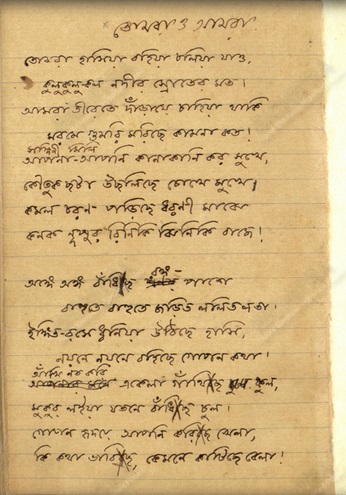 তোমরা ও আমরা
তোমরা হাসিয়া বহিয়া চলিয়া যাও,
কুলুকুলুকল নদীর স্রোতের মত।
আমরা তীরেতে দাঁড়ায়ে চাহিয়া থাকি
মরমে গুমরি মরিছে কামনা কত!
আপনা-আপনি কানাকানি কর সুখে,
কৌতুক ছটা উছলিছে চোখে মুখে,
কমল চরণ পড়িছে ধরণী মাঝে
কনক নূপুর রিনিকি ঝিনিকি বাজে!
অঙ্গে অঙ্গ বাঁধিছে রঙ্গ পাশে
বাহুতে বাহুতে জড়িত ললিত লতা।
ইঙ্গিত-রসে ধ্বনিয়া উঠিছে হাসি,
নয়নে নয়নে বহিছে গোপন কথা!
আঁখি নত করি
একেলা গাঁথিছ ফুল,
মুকুর লইয়া যতনে বাঁধিছ চুল।
গোপন হৃদয়ে আপনি করিছ খেলা,
কি কথা ভাবিছ, কেমনে কাটিছে বেলা!